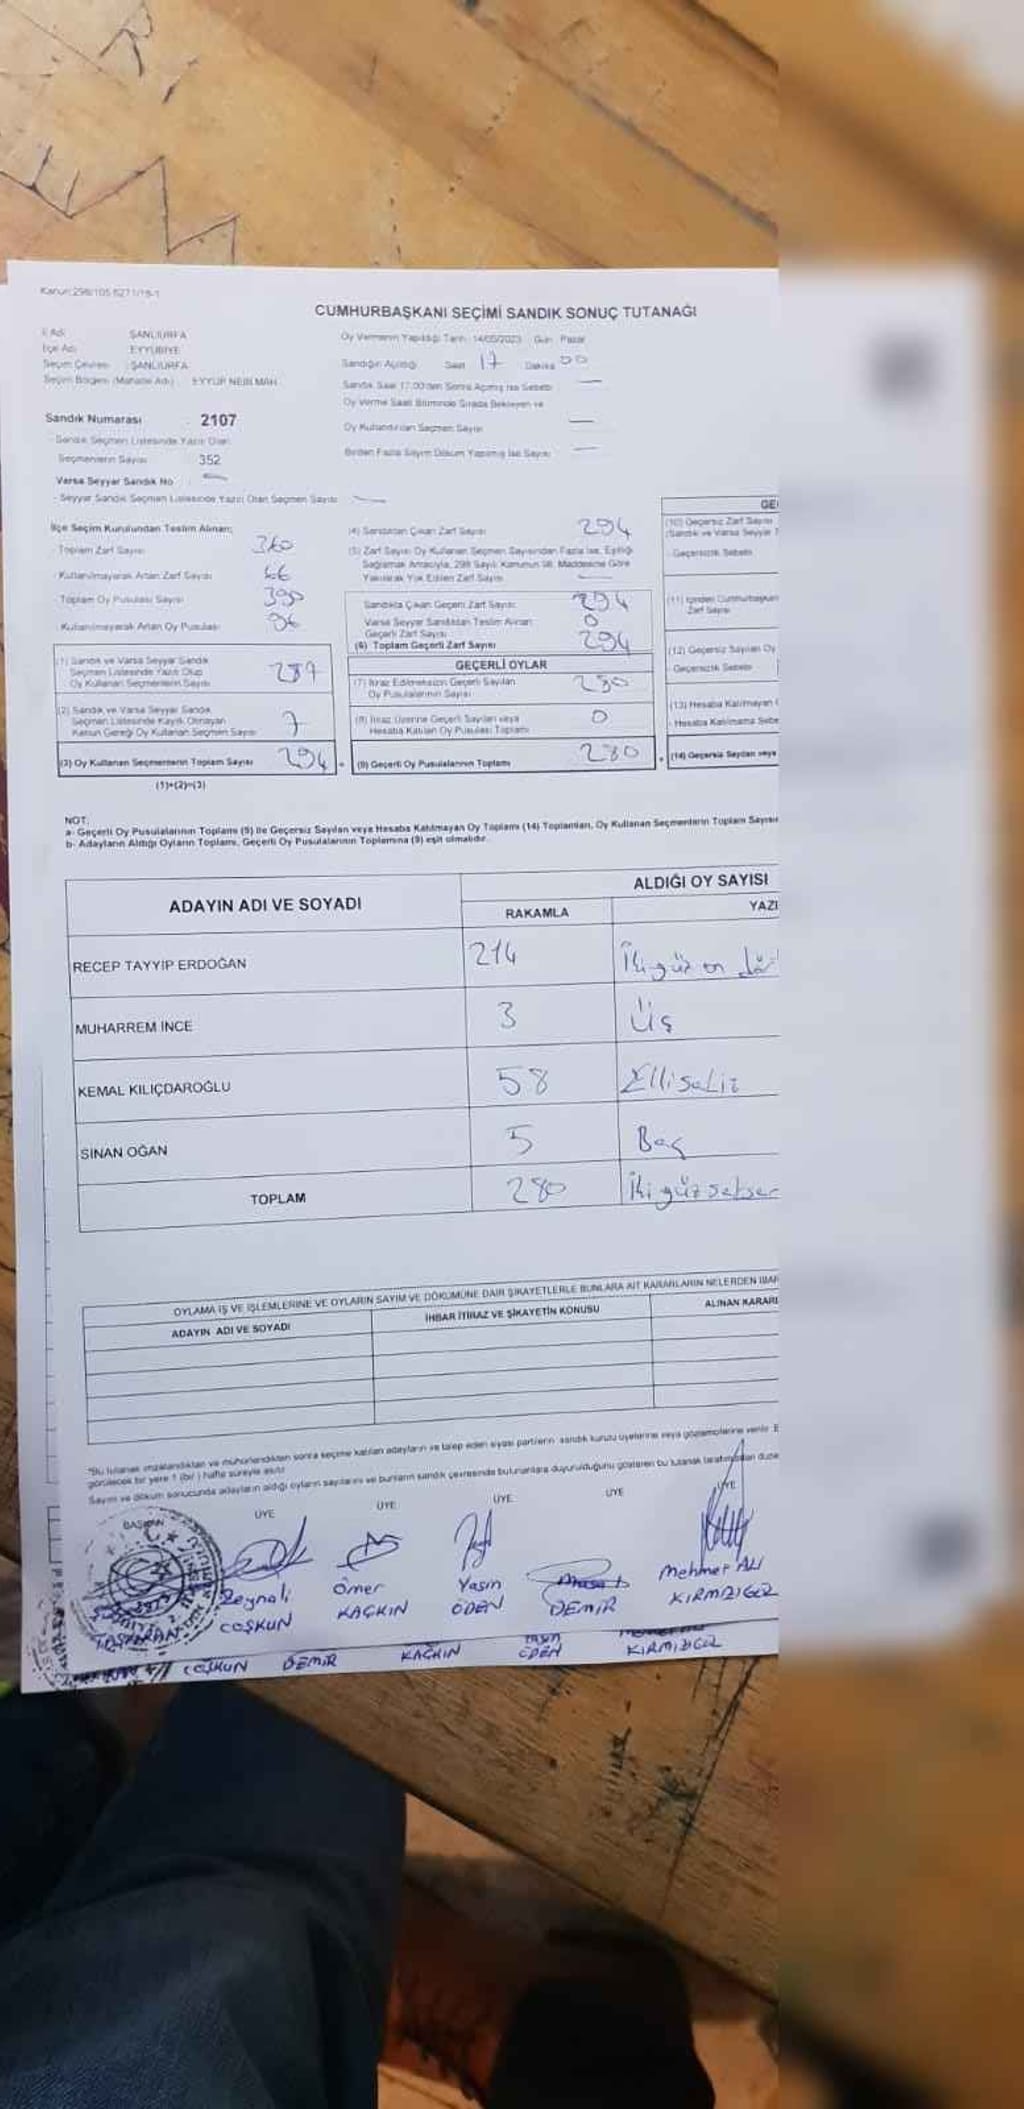 Kanun:298/105 6271/19-1
CUMHURBAŞKANI SEÇİMİ SANDIK SONUÇ TUTANAĞI
İl Adı ŞANLIURFA
İlçe Adı EYYÜBİYE
Seçim Çevresi ŞANLIURFA
Seçim Bölgesi (Mahalle Adı) EYYÜP NEBİ MAH.
Oy Vermenin Yapıldığı Tarih 14/05/2023 Gün Pazar
Sandığın Açıldığı Saat 17 Dakika 00
Sandık Saat 17.00'den Sonra Açılmış İse Sebebi —
Oy Verme Saati Bitiminde Sırada Bekleyen ve
Oy Kullandırılan Seçmen Sayısı —
Birden Fazla Sayım Döküm Yapılmış İse Sayısı —
Sandık Numarası 2107
- Sandık Seçmen Listesinde Yazılı Olan
Seçmenlerin Sayısı 352
Varsa Seyyar Sandık No —
- Seyyar Sandık Seçmen Listesinde Yazılı Olan Seçmen Sayısı —
İlçe Seçim Kurulundan Teslim Alınan;
- Toplam Zarf Sayısı 360
- Kullanılmayarak Artan Zarf Sayısı 66
- Toplam Oy Pusulası Sayısı 390
- Kullanılmayarak Artan Oy Pusulası 96
(1) Sandık ve Varsa Seyyar Sandık
Seçmen Listesinde Yazılı Olup
Oy Kullanan Seçmenlerin Sayısı 287
(2) Sandık ve Varsa Seyyar Sandık
Seçmen Listesinde Kayıtlı Olmayan
Kanun Gereği Oy Kullanan Seçmen Sayısı 7
(3) Oy Kullanan Seçmenlerin Toplam Sayısı 294
(1)+(2)=(3)
(4) Sandıktan Çıkan Zarf Sayısı 294
(5) Zarf Sayısı Oy Kullanan Seçmen Sayısından Fazla İse, Eşitliği
Sağlamak Amacıyla, 298 Sayılı Kanunun 98. Maddesine Göre
Yakılarak Yok Edilen Zarf Sayısı —
Sandıkta Çıkan Geçerli Zarf Sayısı 294
Varsa Seyyar Sandıktan Teslim Alınan
Geçerli Zarf Sayısı 0
(6) Toplam Geçerli Zarf Sayısı 294
GEÇERLİ OYLAR
(7) İtiraz Edilmeksizin Geçerli Sayılan
Oy Pusulalarının Sayısı 280
(8) İtiraz Üzerine Geçerli Sayılan veya
Hesaba Katılan Oy Pusulası Toplamı 0
(9) Geçerli Oy Pusulalarının Toplamı 280
GE
(10) Geçersiz Zarf Sayısı
(Sandık ve Varsa Seyyar
- Geçersizlik Sebebi
(11) İçinden Cumhurbaşkan
Zarf Sayısı
(12) Geçersiz Sayılan Oy
- Geçersizlik Sebebi
(13) Hesaba Katılmayan
- Hesaba Katılmama Sebe
(14) Geçersiz Sayılan veya
NOT:
a- Geçerli Oy Pusulalarının Toplamı (9) ile Geçersiz Sayılan veya Hesaba Katılmayan Oy Toplamı (14) Toplamları, Oy Kullanan Seçmenlerin Toplam Sayısı
b- Adayların Aldığı Oyların Toplamı, Geçerli Oy Pusulalarının Toplamına (9) eşit olmalıdır.
ADAYIN ADI VE SOYADI ALDIĞI OY SAYISI
RAKAMLA YAZI
RECEP TAYYİP ERDOĞAN 214 İkiyüz on dör
MUHARREM İNCE 3 Üş
KEMAL KILIÇDAROĞLU 58 Ellisekiz
SİNAN OĞAN 5 Beş
TOPLAM 280 İki yüz seksen
OYLAMA İŞ VE İŞLEMLERİNE VE OYLARIN SAYIM VE DÖKÜMÜNE DAİR ŞİKAYETLERLE BUNLARA AİT KARARLARIN NELERDEN İBAR
ADAYIN ADI VE SOYADI İHBAR İTİRAZ VE ŞİKAYETİN KONUSU ALINAN KARARI
*Bu tutanak imzalandıktan ve mühürlendikten sonra seçime katılan adayların ve talep eden siyasi partilerin sandık kurulu üyelerine veya gözlemcilerine verilir. B
görülecek bir yere 1 (bir) hafta süreyle asılır.
Sayım ve döküm sonucunda adayların aldığı oyların sayılarını ve bunların sandık çevresinde bulunanlara duyurulduğunu gösteren bu tutanak tarafımızdan düze
BAŞKAN ÜYE ÜYE ÜYE ÜYE ÜYE
TAŞTABAN
Zeynali COŞKUN
Ömer KAÇKIN
Yasin ÖDEN
Musa DEMİR
Mehmet ALİ KIRMIZIGÜL
COŞKUN DEMİR KAÇKIN ÖDEN KIRMIZIGÜL